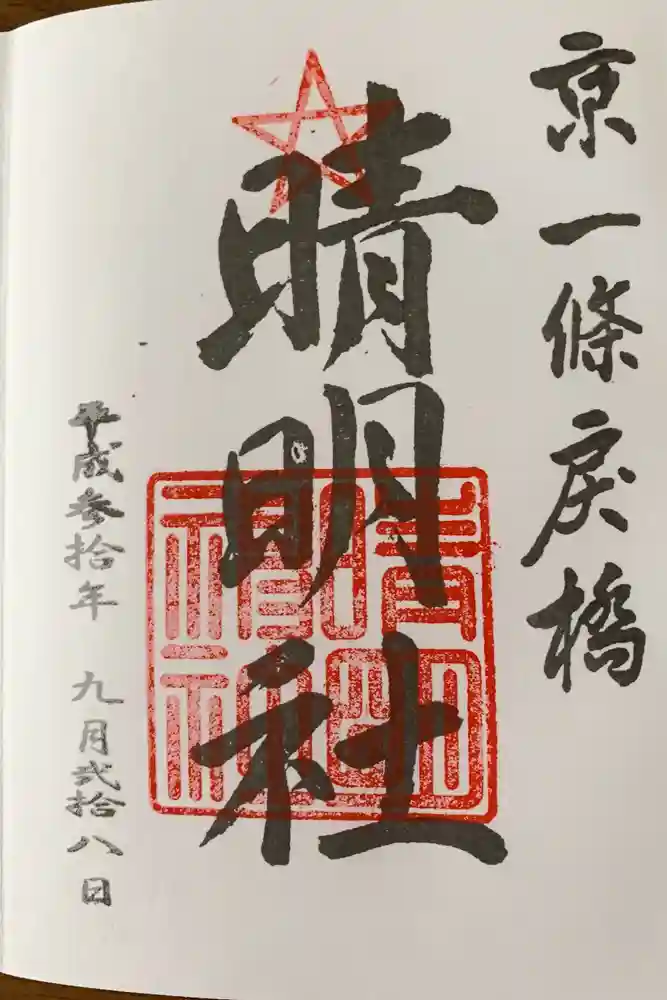 京一條戻橋
晴明社
平成参拾年 九月弐拾八日